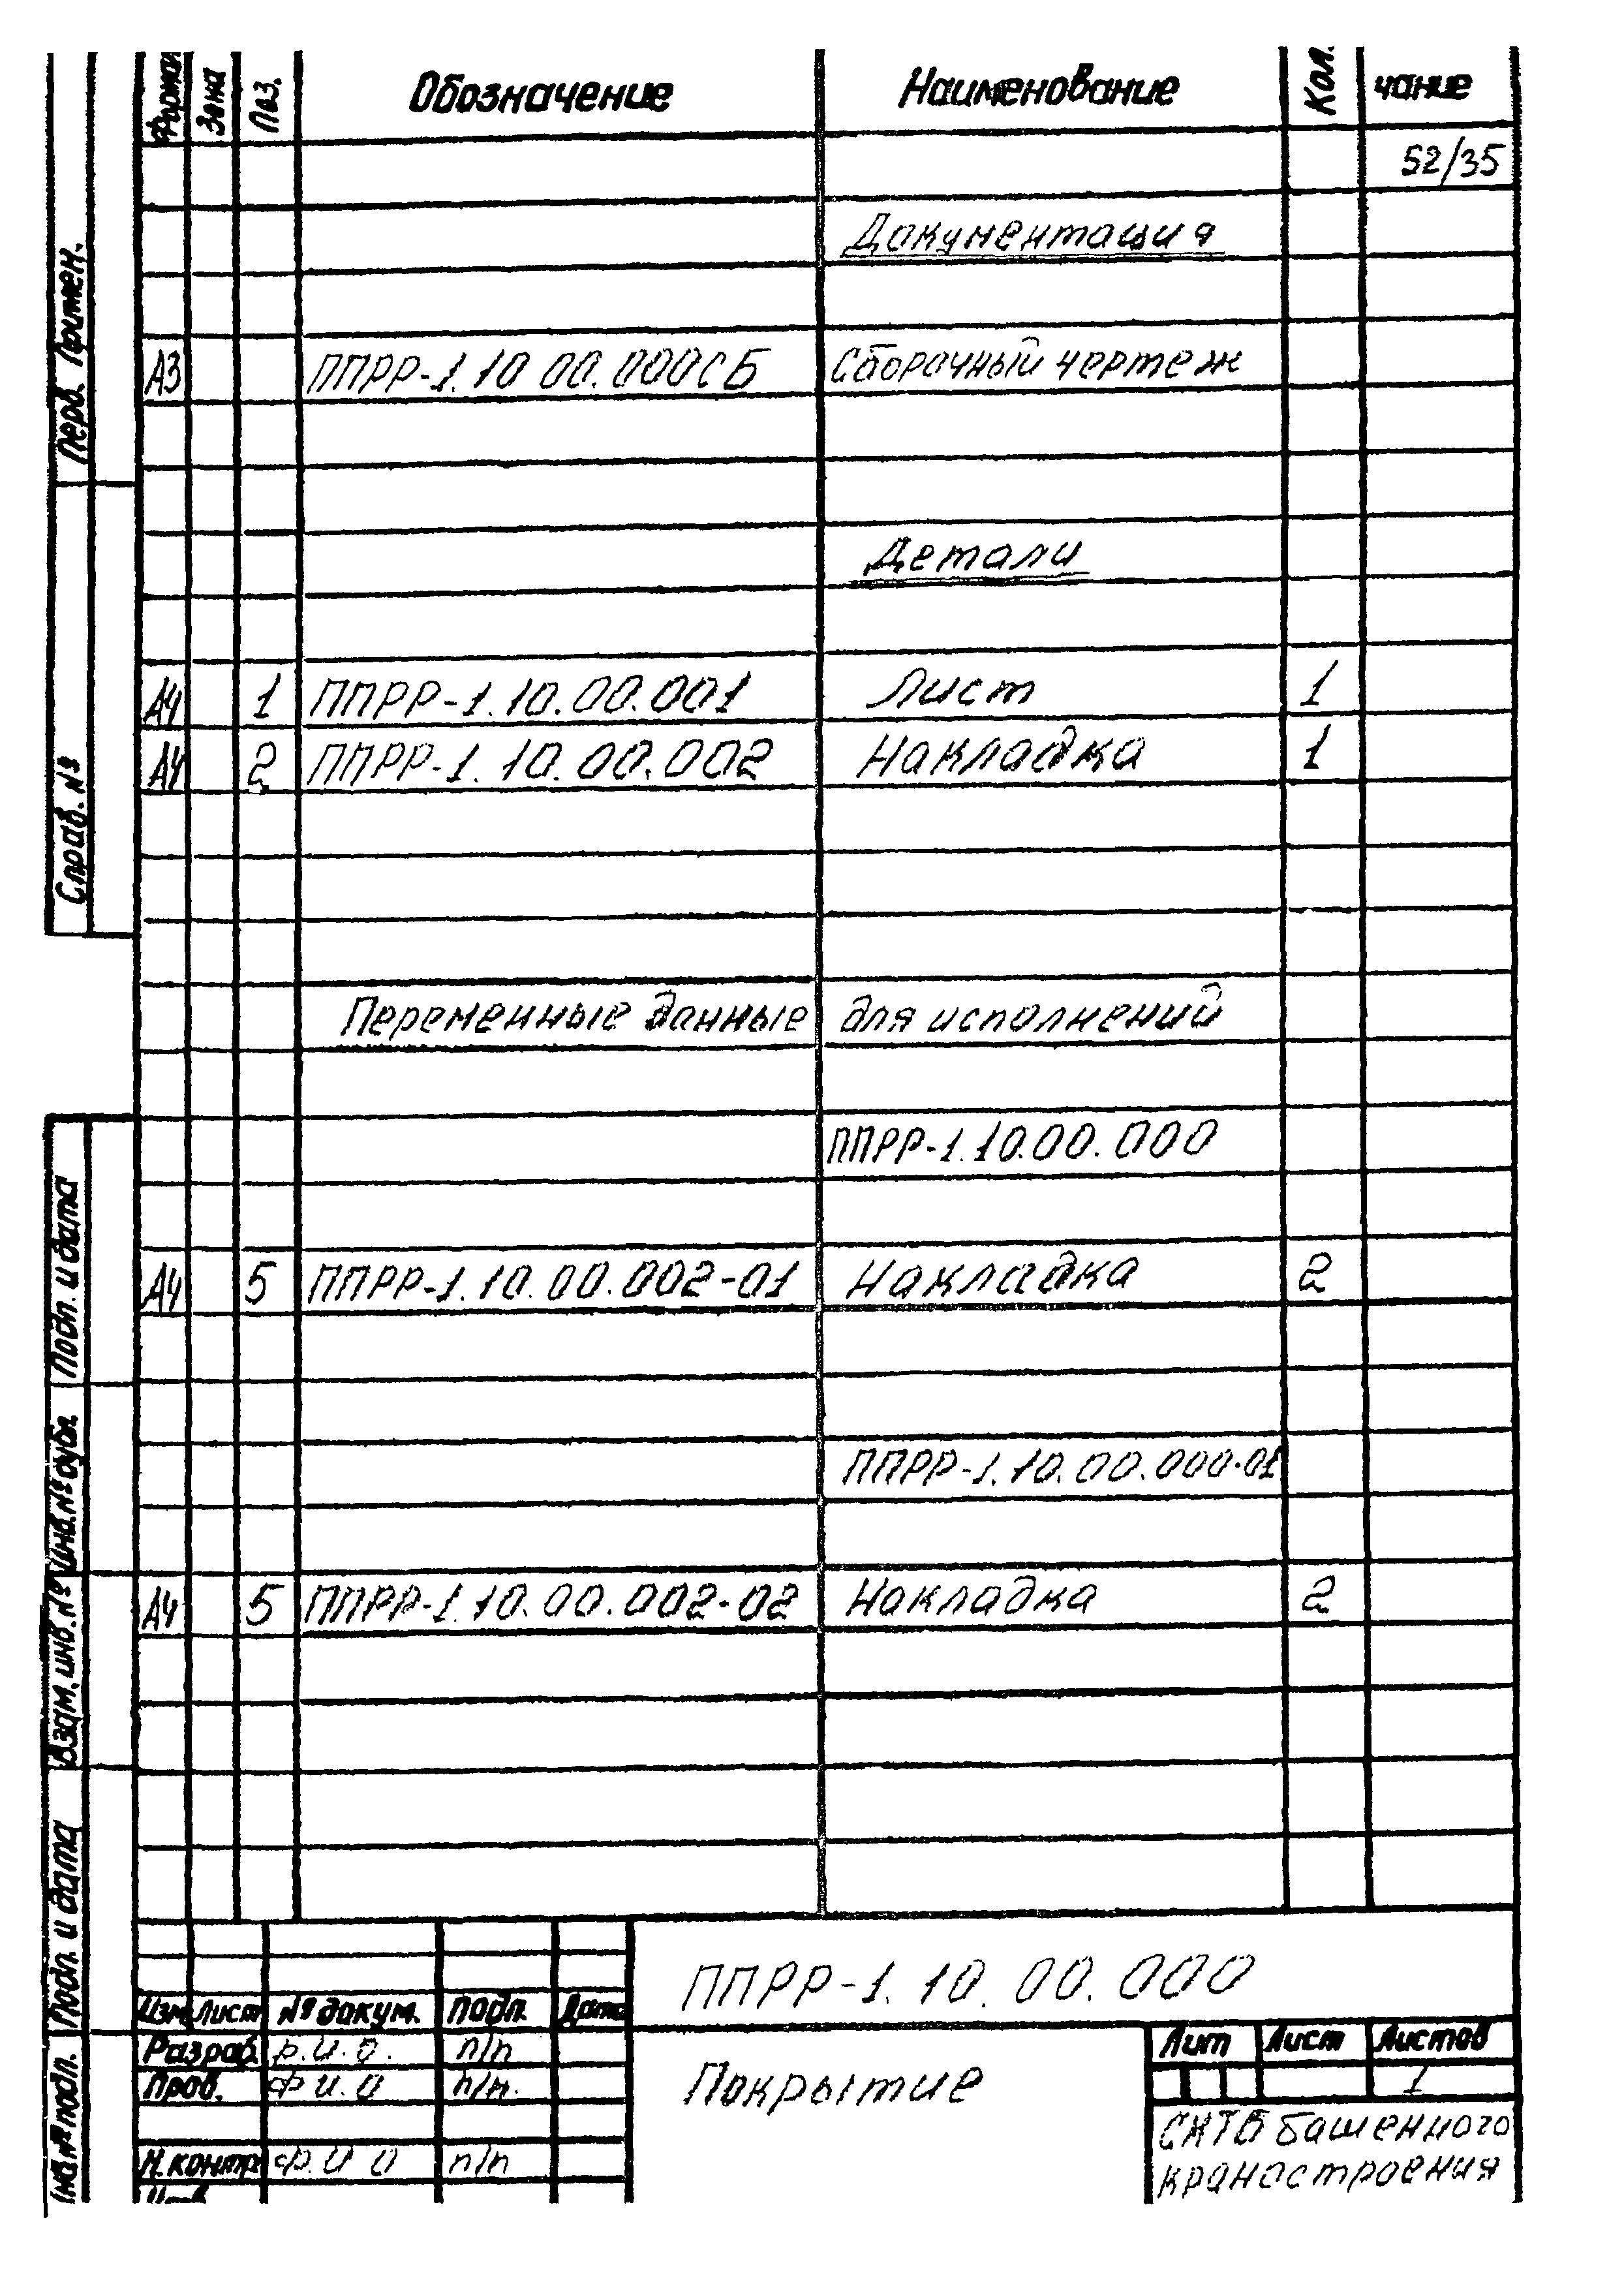 Формат Зона Поз. Обозначение Наименование Кол. чание
52/35
Документация
А3 ППРР-1.10 00.000СБ Сборочный чертеж
Детали
А4 1 ППРР-1.10.00.001 Лист 1
А4 2 ППРР-1.10.00.002 Накладка 1
Переменные данные для исполнений
ППРР-1.10.00.000
А4 5 ППРР-1.10.00.002-01 Накладка 2
ППРР-1.10.00.000-01
А4 5 ППРР-1.10.00.002-02 Накладка 2
Перв. Примен.
Справ. №
Подп. и дата
Инв. № дубл.
Взам. инв. №
Подп. и дата
Инв № подл.
ППРР-1.10.00.000
Изм Лист № докум. Подп. Дата
Разраб. Ф.И.О. п/п
Пров. Ф И.О п/п.
Н.контр. Ф.И О п/п
Покрытие
Лит Лист Листов
1
СКТБ башенного
краностроения